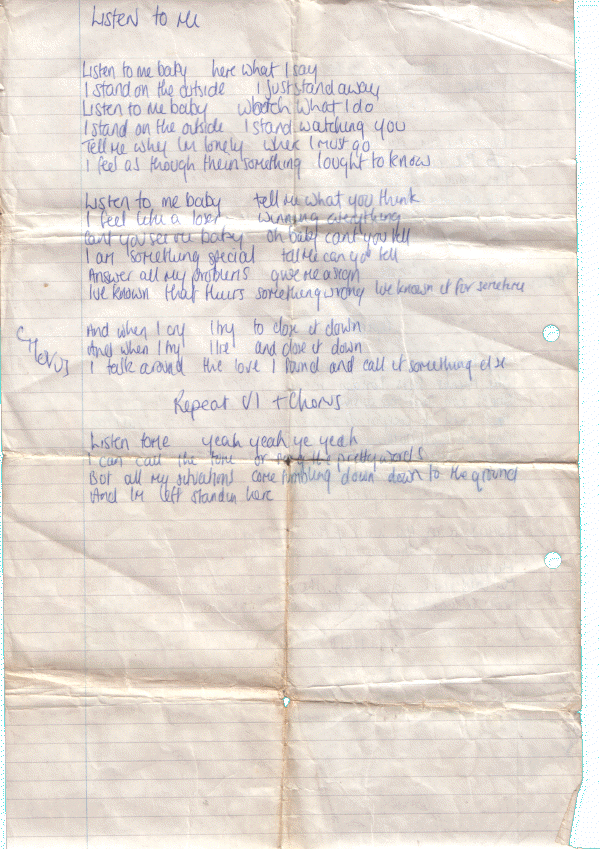 Listen to Me
Listen to me baby here what I say
I stand on the outside I just stand away
Listen to me baby watch what I do
I stand on the outside I stand watching you
Tell me why Im lonely when I must go
I feel as though theirs something I ought to know
Listen to me baby tell me what you think
I feel like a loser winning everything
Cant you see me baby oh baby cant you tell
I am something special tell me can you tell
Answer all my problems give me a sign
Ive known that theirs something wrong Ive known it for sometime
Chorus
And when I cry I try to close it down
And when I try I lie and close it down
I talk around the love I found and call it something else
Repeat V1 + Chorus
Listen to me yeah yeah ye yeah
I can call the tune or sing the pretty words
But all my situations come tumbling down down to the ground
And Im left standin here